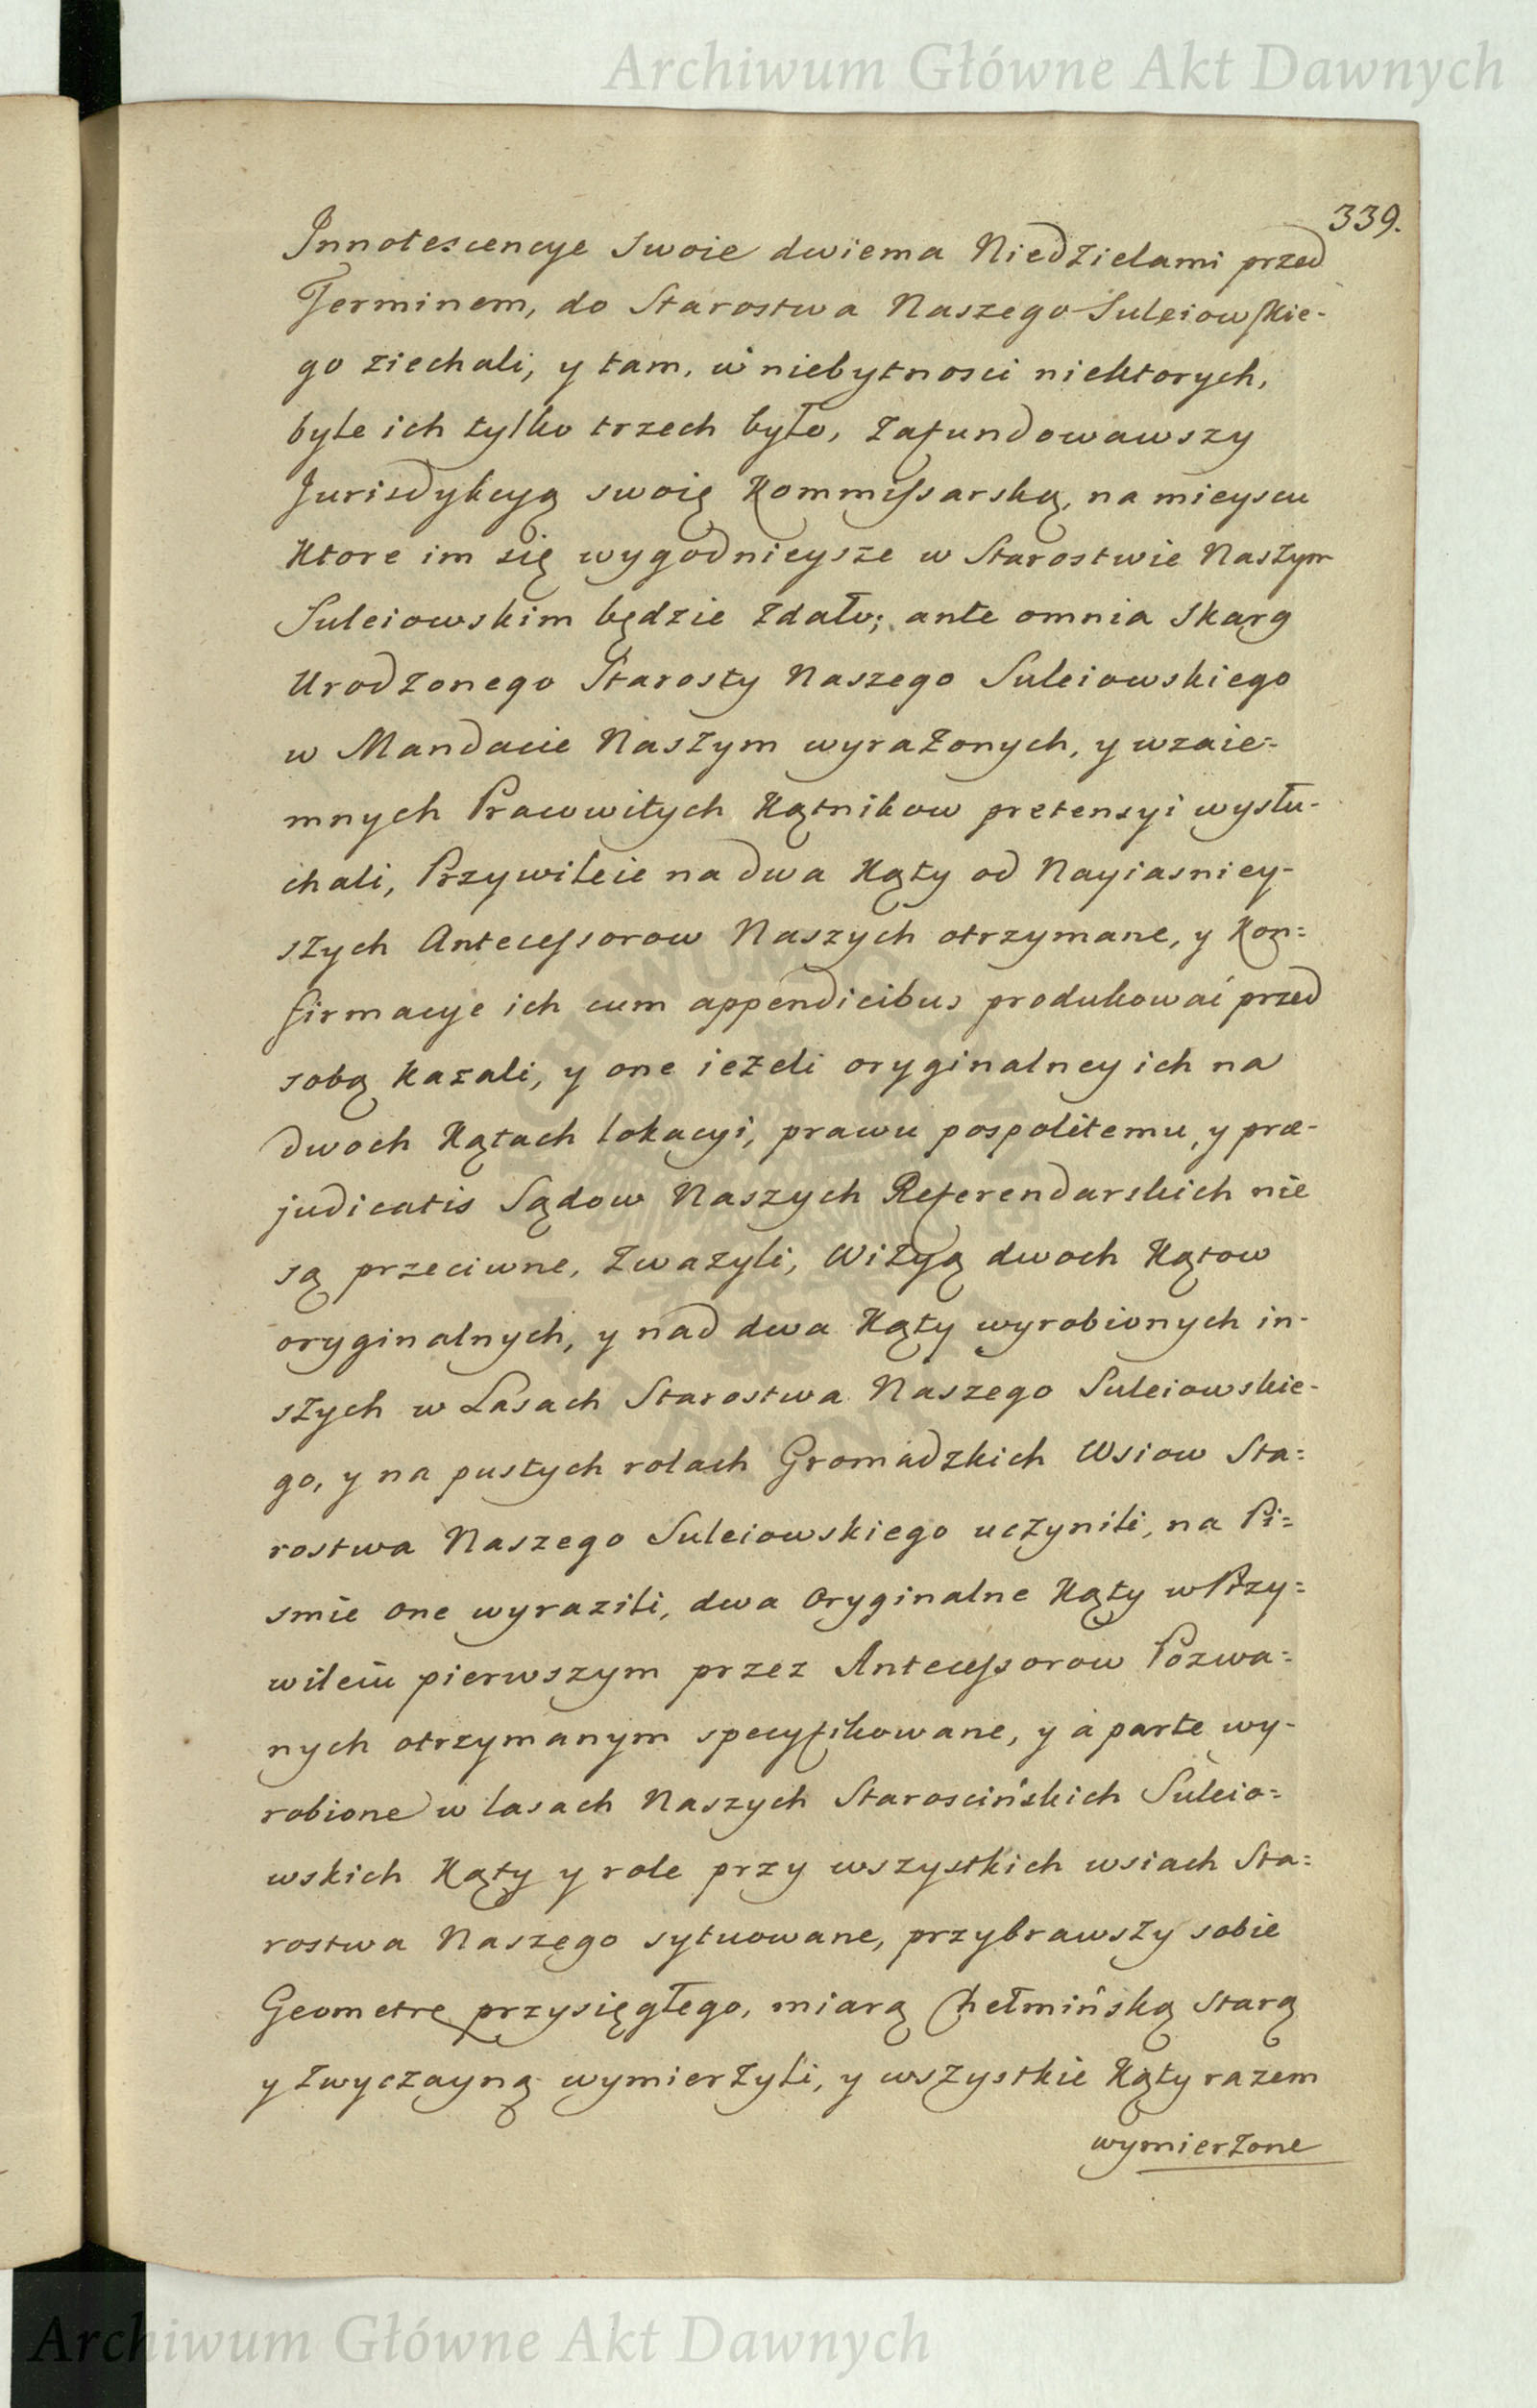 Archiwum Główne Akt Dawnych
339.
Innotescencye swoie dwiema Niedzielami przed
Terminem, do Starostwa Naszego Suleiowskie-
go ziechali, y tam, w niebytnosci niektorych,
byle ich tylko trzech było, zafundowawszy
Jurisdykcyą swoię Kommissarską, na mieyscu
Ktore im się wygodnieysze w Starostwie Naszym
Suleiowskim będzie zdało; ante omnia skarg
Urodzonego Starosty Naszego Suleiowskiego
w Mandacie Naszym wyrażonych, y wzaie=
mnych Prawowitych Kątnikow pretensyi wysłu-
chali, Przywileie na dwa Kąty od Nayiasniey-
szych Antecessorow Naszych otrzymane, y Kon=
firmacye ich cum appendicibus produkować przed
sobą kazali, y one ieżeli oryginalney ich na
dwoch Kątach lokacyi, prawu pospolitemu, y præ-
judicatis Sądow Naszych Referendarskich nie
są przeciwne, zważyli, Wizyą dwoch Kątow
oryginalnych, y nad dwa Kąty wyrobionych in-
szych w Lasach Starostwa Naszego Suleiowskie-
go, y na pustych rolach Gromadzkich Wsiow Sta=
rostwa Naszego Suleiowskiego uczynili, na Pi=
smie one wyrazili, dwa Oryginalne Kąty w Przy=
wileiu pierwszym przez Antecessorow Pozwa=
nych otrzymanym specyfikowane, y a parte wy-
robione w lasach Naszych Starościńskich Suleio=
wskich Kąty y role przy wszystkich wsiach Sta=
rostwa Naszego sytuowane, przybrawszy sobie
Geometrę przysięgłego, miarą Chełmińską starą
y zwyczayną wymierzyli, y wszystkie Kąty razem
wymierzone
Archiwum Główne Akt Dawnych